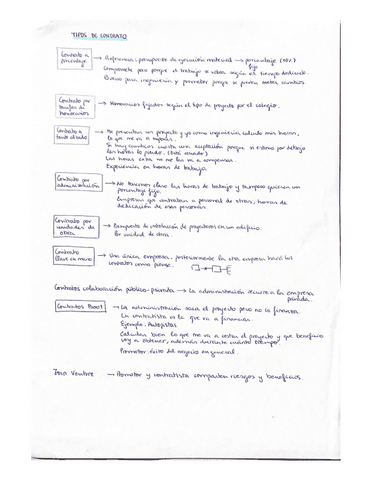 TIPOS DE CONTRATO
Contrato a porcentaje → Referencia: presupuesto de ejecución material → porcentaje (10%) fijo
porque el trabajo se cobra según el tiempo dedicado.
Bueno para ingeniería y promotor porque se pueden meter cambios
Contrato por tarifas de honorarios → Honorarios fijados según el tipo de proyecto por el colegio.
Contrato a tanto alzado → Me presentan un proyecto y yo como ingeniería calculo mis horas,
lo que me va a
Si hay cambios cuesta una aceptación porque si estimo por debajo
las horas lo pierdo. (Está cerrado)
Las horas extra no me las va a compensar.
Experiencia en horas de trabajo.
Contrato por administración → No tenemos claro las horas de trabajo y tampoco quieren un
porcentaje fijo.
Empresas que contratan a personal de otras, horas de
dedicación de esas personas.
Contrato por unidades de obra → de instalación de proyectores en un edificio.
Por unidad de obra.
Contrato llave en mano → Una única empresa, posteriormente la otra empresa hará los
contratos como piense.
Contratos colaboración público-privada → La administración recurre a la empresa
privada.
Contratos BOOT → La administración saca el proyecto pero no lo financia.
La contratista es la que va a financiar.
Ejemplo: Autopistas
Calcular bien lo que me va a costar el proyecto y que beneficio
voy a obtener, además durante cuánto tiempo.
Promotor: éxito del negocio en general.
Join Venture → Promotor y contratista comparten riesgos y beneficios.